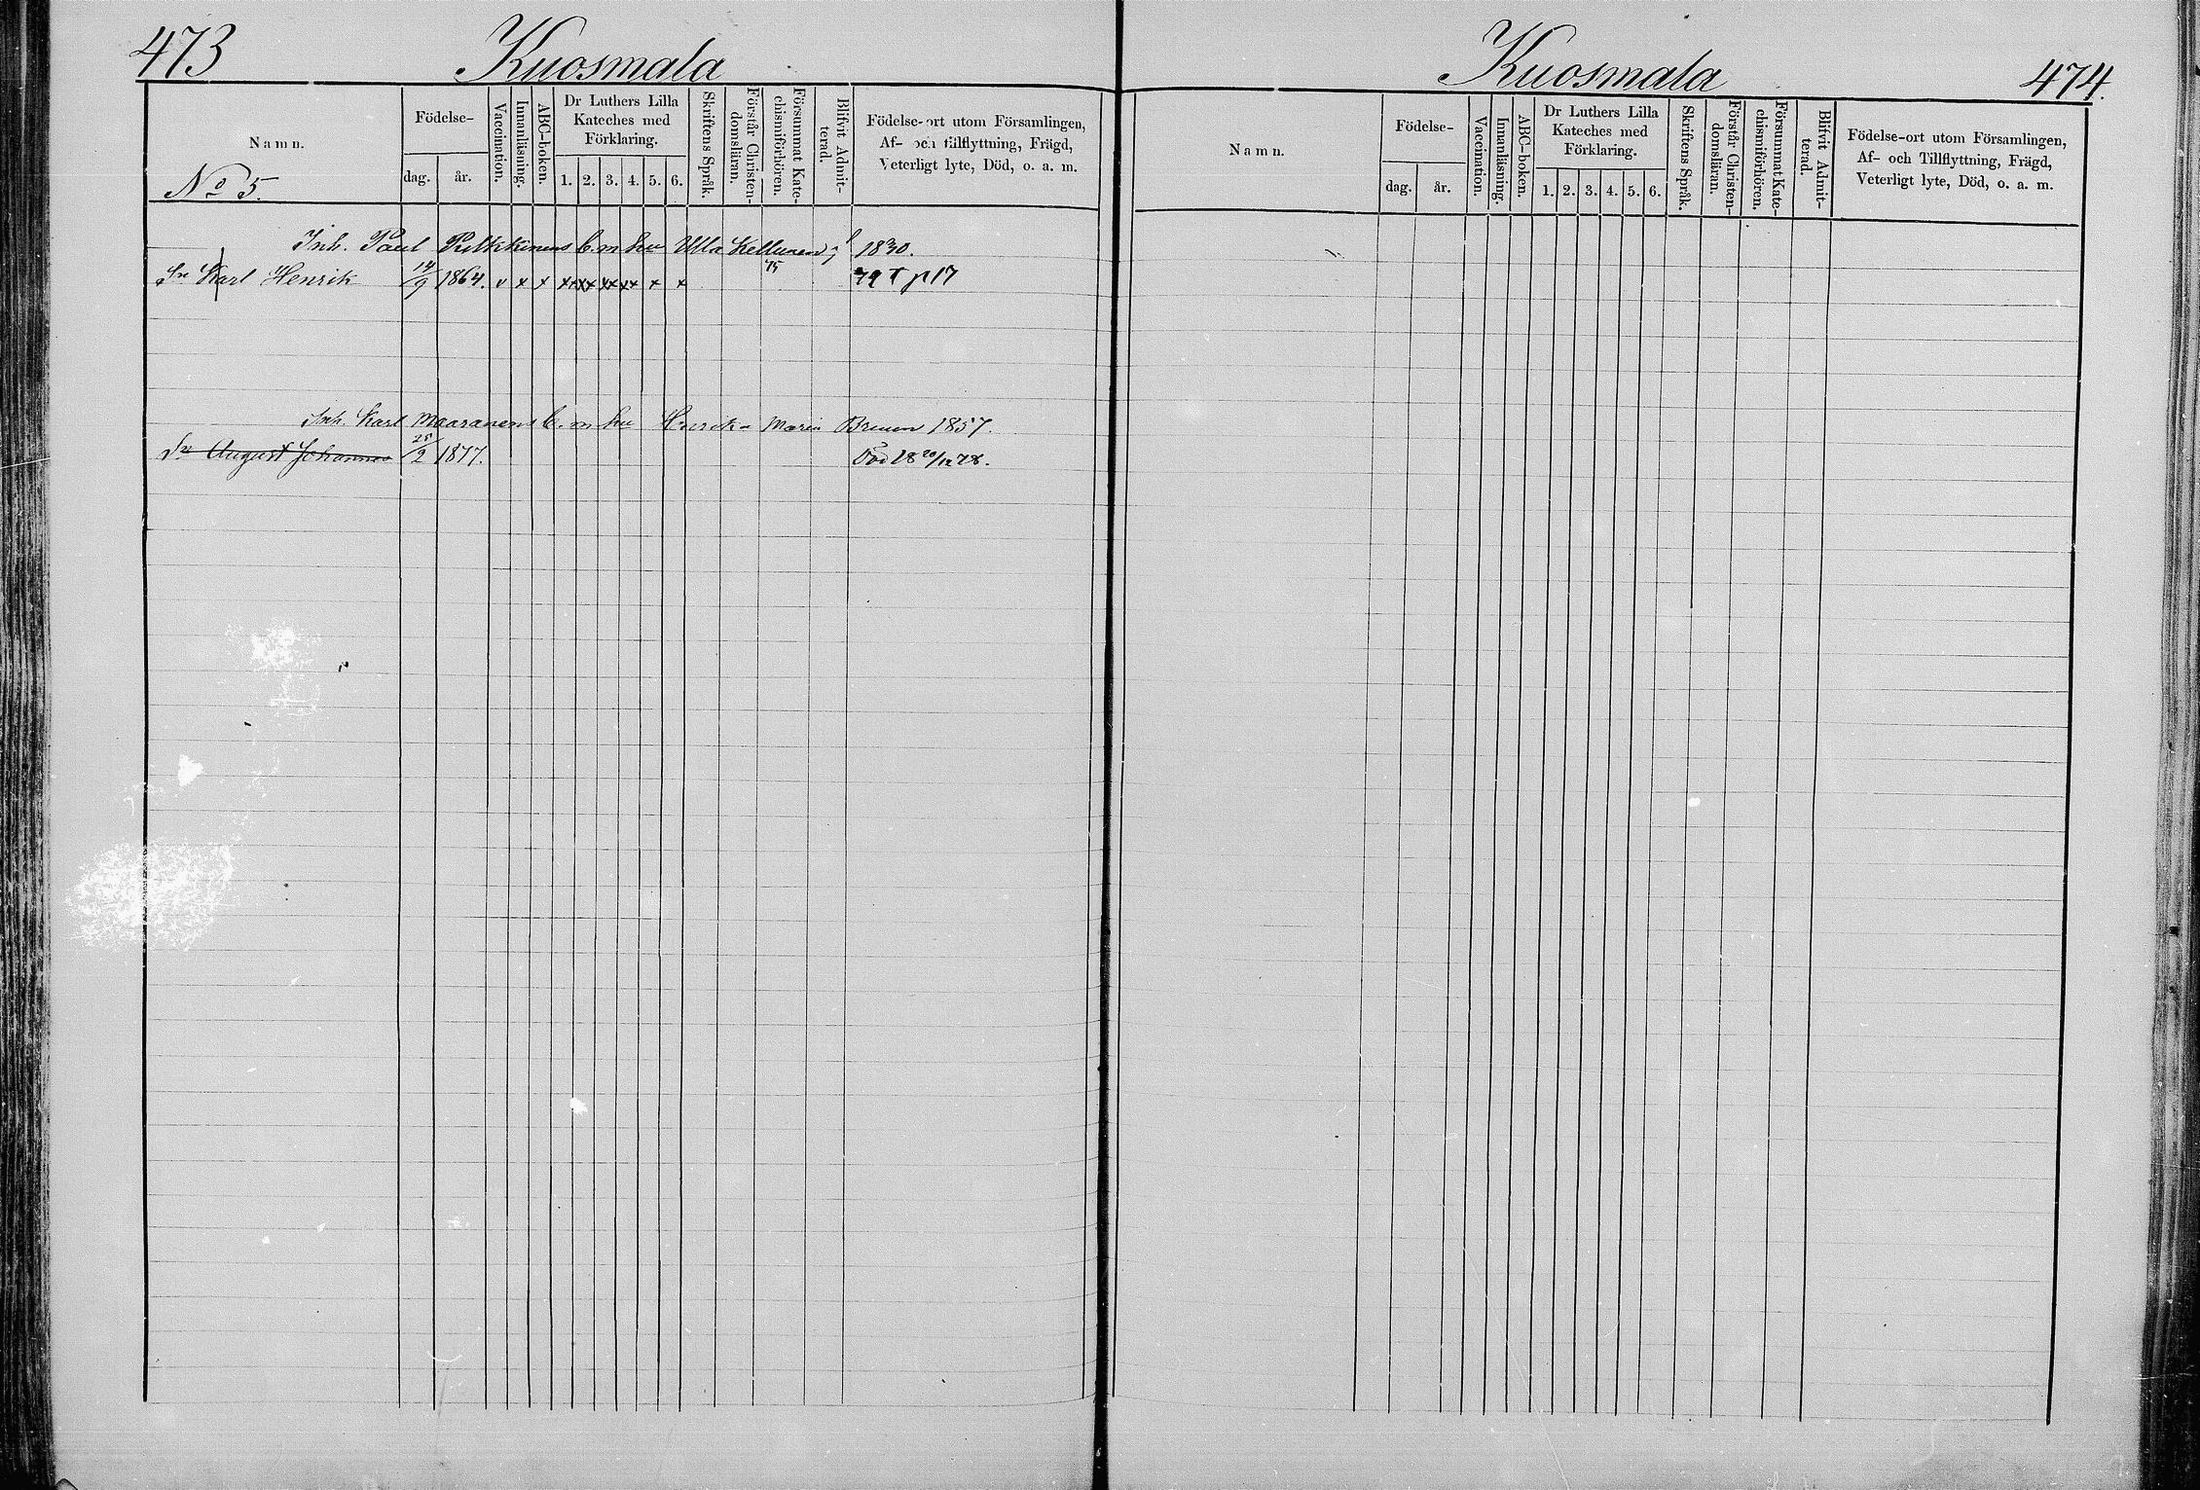 473 Kuosmala
Namn.
Födelse-
dag. år.
Vaccination.
Innanläsning.
ABC-boken.
Dr Luthers Lilla
Kateches med
Förklaring.
1. 2. 3. 4. 5. 6.
Skriftens Språk.
Förstår Christen-
domsläran.
Försummat Kate-
chismiförhören.
Blifvit Admit-
terad.
Födelse-ort utom Församlingen,
Af- och tillflyttning, Frägd,
Veterligt lyte, Död, o. a. m.
No 5.
Inh. Paul b. m hu Ulla Kellunen 1830.
Sn Karl Henrik 14/9 1864. v x x x x x x x x 75 79 T p 17
Inh. Karl Maaranens b. m hu Henrika Maria 1857.
Sn August Johannes 25/2 1877. Död 18 20/12 78.
Kuosmala 474.
Namn.
Födelse-
dag. år.
Vaccination.
Innanläsning.
ABC-boken.
Dr Luthers Lilla
Kateches med
Förklaring.
1. 2. 3. 4. 5. 6.
Skriftens Språk.
Förstår Christen-
domsläran.
Försummat Kate-
chismiförhören.
Blifvit Admit-
terad.
Födelse-ort utom Församlingen,
Af- och Tillflyttning, Frägd,
Veterligt lyte, Död, o. a. m.